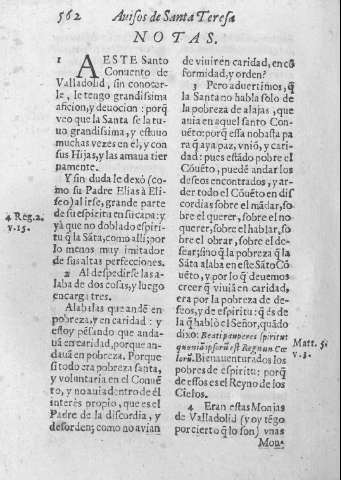 562 Auisos de Santa Teresa
NOTAS.
1 A ESTE Santo
Conuento de
Valladolid, sin conocer-
le, le tengo grandissima
aficion, y deuocion: porq̃
veo que la Santa se la tu-
uo grandissima, y estuuo
muchas vezes en el, y con
sus Hijas, y las amaua tier
namente.
Y sin duda le dexò (co-
mo su Padre Elias à Eli-
seo) al irse, grande parte
de su espiritu en su capa: y
yà que no doblado espiri-
tu q̃ la Sãta, como alli; por
lo menos muy imitador
de sus altas perfecciones.
4 Reg. 2.
v. 15.
2 Al despedirse las a-
laba de dos cosas, y luego
encarga tres.
Alabalas que andẽ en
pobreza, y en caridad: y
estoy pẽsando que anda-
uã en caridad, porque an-
dauã en pobreza. Porque
si todo era pobreza santa,
y voluntaria en el Conuẽ
to, y no auia dentro de èl
interes propio, que es el
Padre de la discordia, y
desorden; como no auian
de viuir en caridad, en cõ
formidad, y orden?
3 Pero aduertimos, q̃
la Santa no habla solo de
la pobreza de alajas, que
auia en aquel santo Con-
uẽto: porq̃ essa no basta pa
ra q̃ aya paz, vniõ, y cari-
dad: pues estãdo pobre el
Cõuẽto, puede andar los
deseos encontrados, y ar-
der todo el Cõuẽto en dis
cordias sobre el mãdar, so-
bre el querer, sobre el no-
querer, sobre el hablar, so-
bre el obrar, sobre el de-
sear; sino q̃ la pobreza q̃ la
Sãta alaba en este Sãto Cõ
uẽto, y por lo q̃ deuemos
creer q̃ viuiã en caridad,
era por la pobreza de de-
seos, y de espiritu: q̃ es de
la q̃ hablò el Señor, quãdo
dixo: Beati pauperes spiritu:
quoniã ipsorũ est Regnum Cœ
lorũ. Bienauenturados los
pobres de espiritu: porq̃
de essos es el Reyno de los
Cielos.
Matt. 5.
v. 3.
4 Eran estas Monjas
de Valladolid (y oy tẽgo
por cierto q̃ lo son) vnas
Mon-